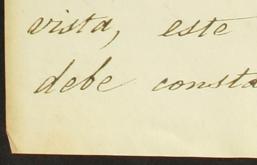 vista, este
debe consta